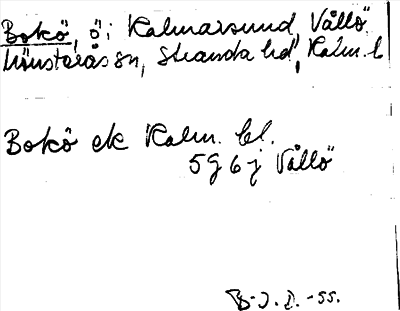 Bokö, ö i Kalmarsund, Vållö
Mönsterås sn, Stranda hd, Kalm. l
Bokö ek Kalm. bl.
5 G 6 j Vållö
B-J. L. -55.